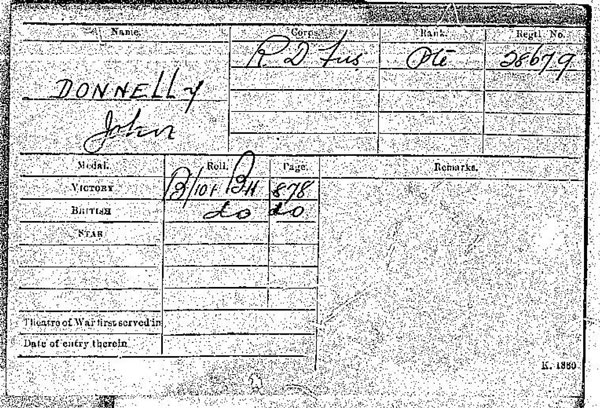 Name. Corps. Rank. Regtl. No.
R D Fus Pte 28679
DONNELLY
John
Medal. Roll. Page. Remarks.
VICTORY B/101 B11 878
BRITISH do do
STAR
Theatre of War first served in
Date of entry therein
K. 1380